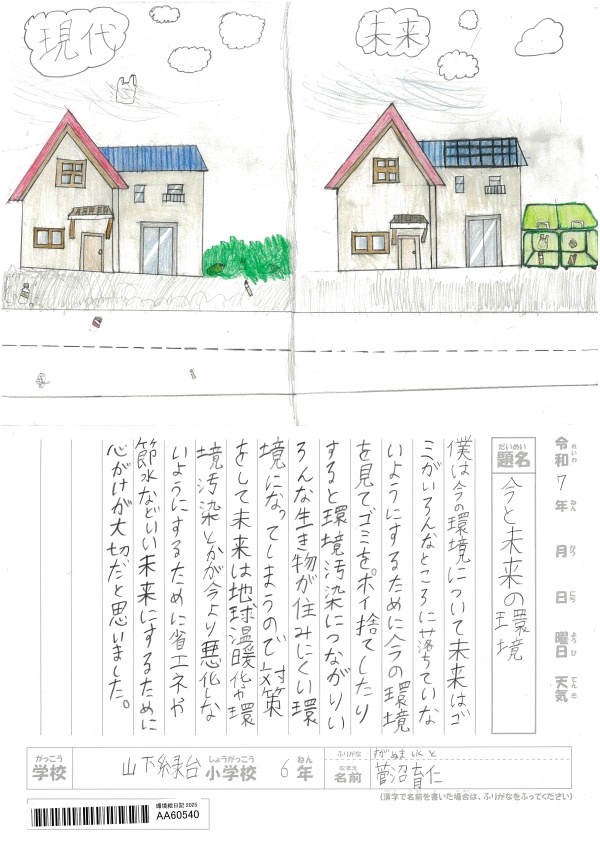 現代
未来
令和 7 年 月 日 曜日 天気
れいわ ねん がつ にち ようび てんき
だいめい
題名
今と未来の環境
僕は今の環境について未来はゴ
ミがいろんなところに落ちていな
いようにするために今の環境
を見てゴミをポイ捨てしたり
すると環境汚染につながりい
ろんな生き物が住みにくい環
境になってしまうので対策
をして未来は地球温暖化や環
境汚染とかが今より悪化しな
いようにするために省エネや
節水などいい未来にするために
心がけが大切だと思いました。
がっこう しょうがっこう ねん
学校 山下緑台 小学校 6 年
ふりがな すがぬま いくと
なまえ
名前 菅沼育仁
(漢字で名前を書いた場合は、ふりがなをふってください)
環境絵日記 2025
AA60540